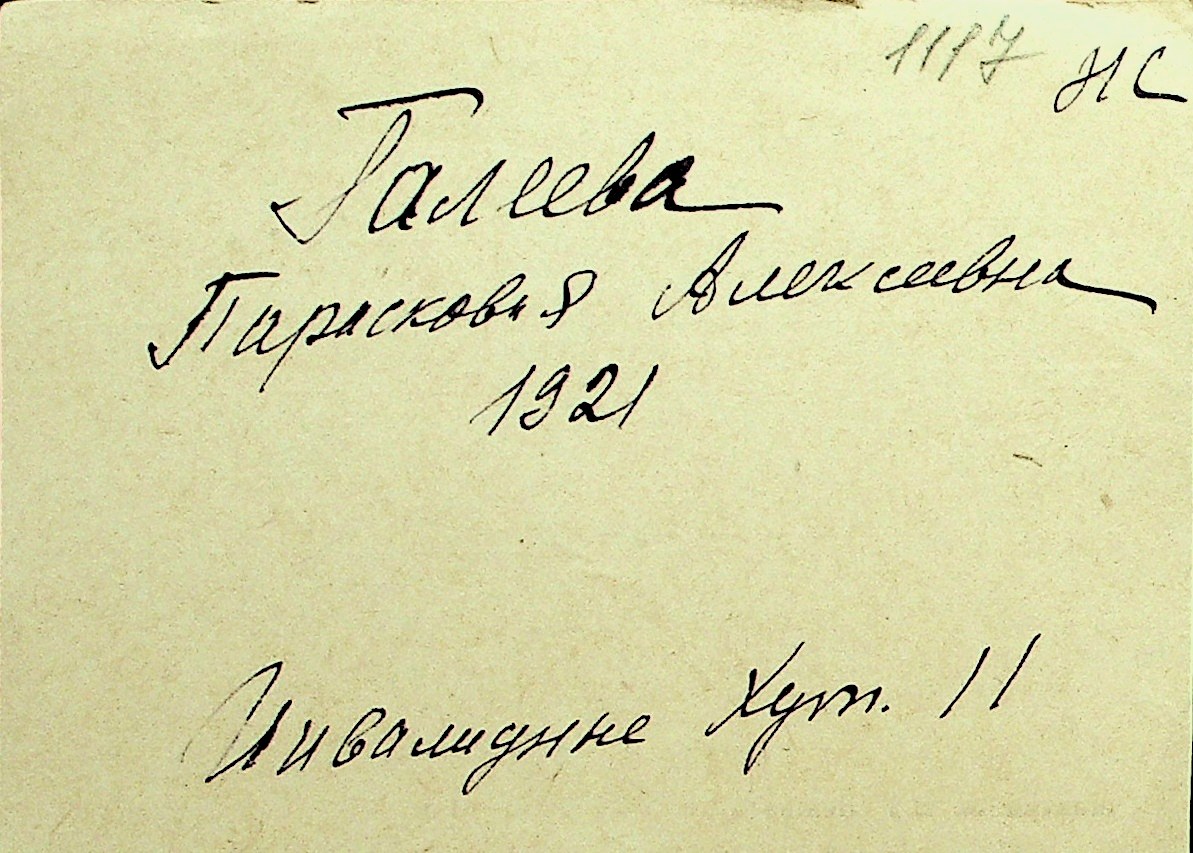 1117 НС
Галеева
Парасковия Алексеевна
1921
Инвалидние Хут. 11